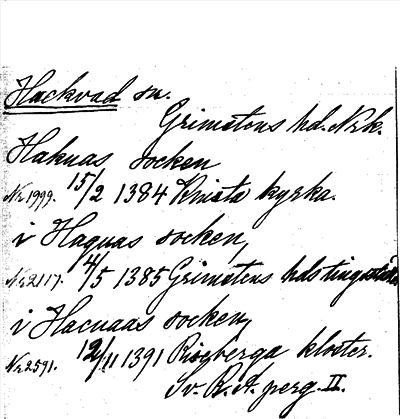 Hackvad sn.
Grimstens hd. Nrk.
Haknas socken
Nr 1999. 15/2 1384 Knista kyrka.
i Haquas socken,
Nr 2117. 4/5 1385 Grimstens hds tingställe
i Hacuaas socken,
Nr 2591. 12/11 1391 Riseberga kloster.
Sv. R. A. perg. II.